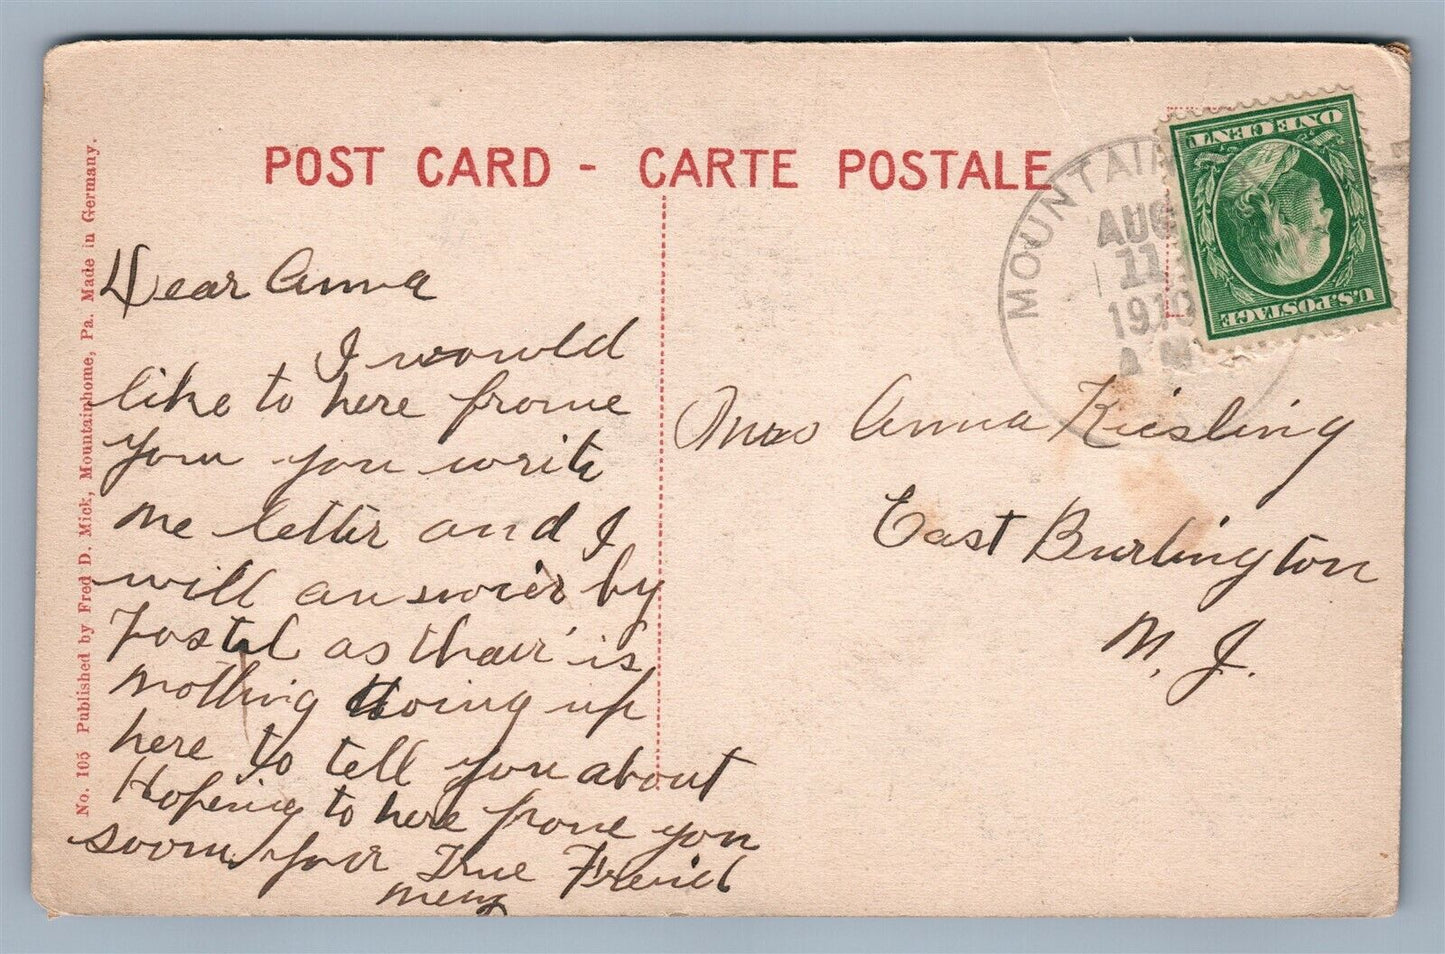 POST CARD - CARTE POSTALE
No. 105 Published by Fred D. Mick, Mountainhome, Pa. Made in Germany.
Dear Anna
I would
like to here frome
you you write
me letter and I
will answer by
Postal as thair is
nothing doing up
here to tell you about
Hopeing to here frome you
soon, your True Freind
MOUNTAIN
AUG
11
1910
A M
U.S. POSTAGE
ONE CENT
Anna Kiesling
East Burlington
N. J.